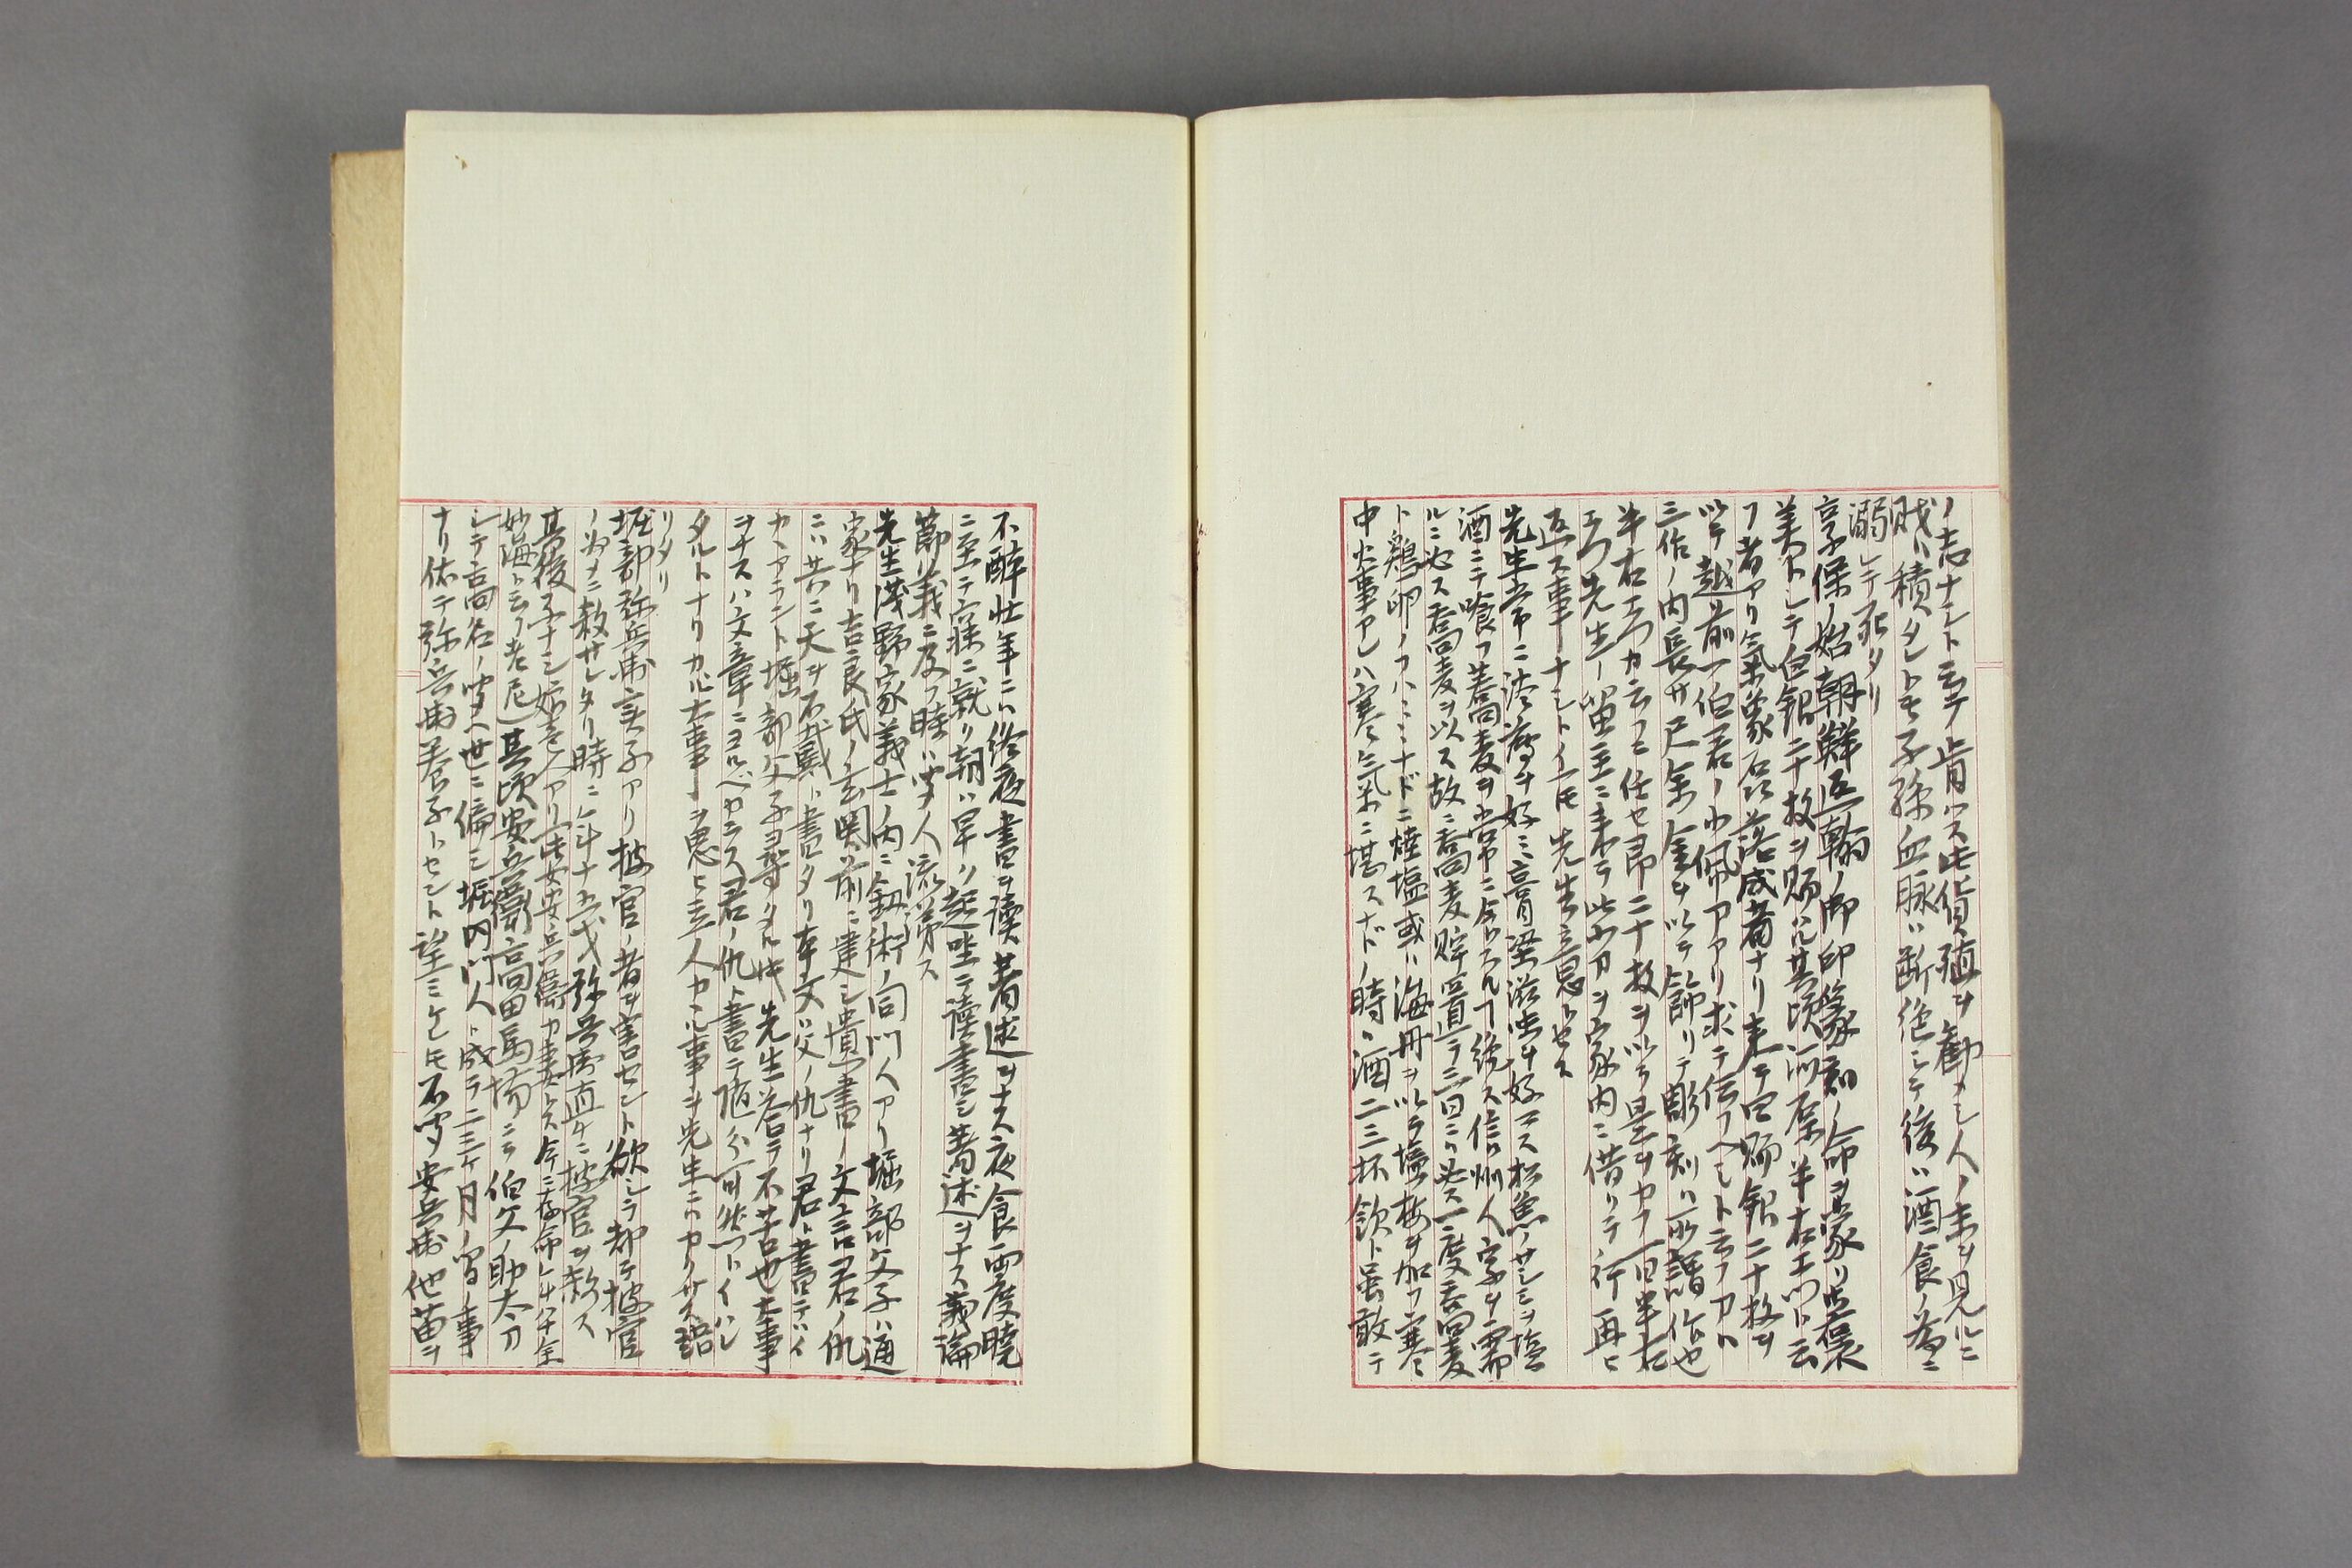 ノ志ナシト云テ肯ハス此貨殖ヲ勧メシ人ノ末ヲ見ルニ
財ハ積タレトモ子孫血脉ハ断絶シテ後ハ酒食ノ為ニ
溺レテ死タリ
享保ノ始朝鮮返翰ノ御印篆刻ノ命ヲ蒙リ御褒
美トシテ白銀二十枚ヲ賜ハル其頃河原半右エ門ト云
フ者アリ氣象磊落成者ナリ来テ曰賜銀二十枚ヲ
以テ越前一伯君ノ小佩アリ求テ伝フヘシト云フ刀ハ
三作ノ内長サ尺余金ヲ以テ飾リテ彫刻ハ所謂作也
半右エ門カ云フニ任セ即二十枚ヲ以テ是ヲカフ一日半右
エ門先生ノ留主ニ来テ此小刀ヲ家内ニ借リテ行再ヒ
返ス事ナシトイヘトモ先生意トセス
先生常ニ淡薄ヲ好ミ膏梁滋味ヲ好マス松魚ノサシミヲ塩
酒ニテ喰フ蕎麦ヲ常ニ食スルヿ絶ス信州人家ヲ需
ルニ必ス蕎麦ヲ以ス故ニ蕎麦貯置テ一日ニハ必ス一度蕎麦
ト鶏卵ノフハミナドニ焼塩或ハ海丹ヲ以テ塩梅ヲ加フ寒
中火事アレハ寒氣ニ堪スナドノ時ハ酒二三杯飲ト虽敢テ
不酔壮年ニハ終夜書ヲ讀著述ヲナス夜食両度暁
ニ至テ寐ニ就リ朝ハ早ク起坐シテ讀書シ著述ヲナス義論
節リ義ニ及フ時ハ聞人流涕ス
先生浅野家義士ノ内ニ釼術ノ同門人アリ堀部父子ハ通
家ナリ吉良氏ノ玄関前ニ建シ遺書ノ文言君ノ仇
ニハ共ニ天ヲ不戴ト書タリ本文ハ父ノ仇ナリ君ト書テハイ
カヽアラント堀部父子尋タル时先生答テ不苦也大事
ヲナスハ文章ニヨルベカラス君ノ仇ト書テ随分可然トイハレ
タルトナリカル大事ヲ思ヒ立人カル事ヲ先生ニハカリサル語
リタリ
堀部弥兵衛実子アリ披官ノ者ヲ害セント欲シテ却テ披官
ノ為メニ殺サレタリ時ニ年十五才弥兵衛直チニ披官ヲ殺ス
其後子ナシ娘壱人アリ此女安兵衛カ妻トス今ニ存命シ
妙海ト云フ老尼也其頃安兵衛高田馬場ニテ伯父ノ助太刀
シテ高名ノ聞ヘ世ニ偏シ堀内門人ト成テ二三ケ月ノ間ノ事
ナリ依テ弥兵衛養子トセント望ミケレトモ不聞安兵衛他苗ヲ